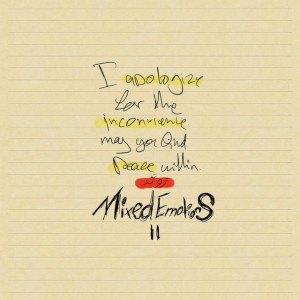 I apologize
for the
inconvience
may you find
peace within.
Mixed Emotions
II